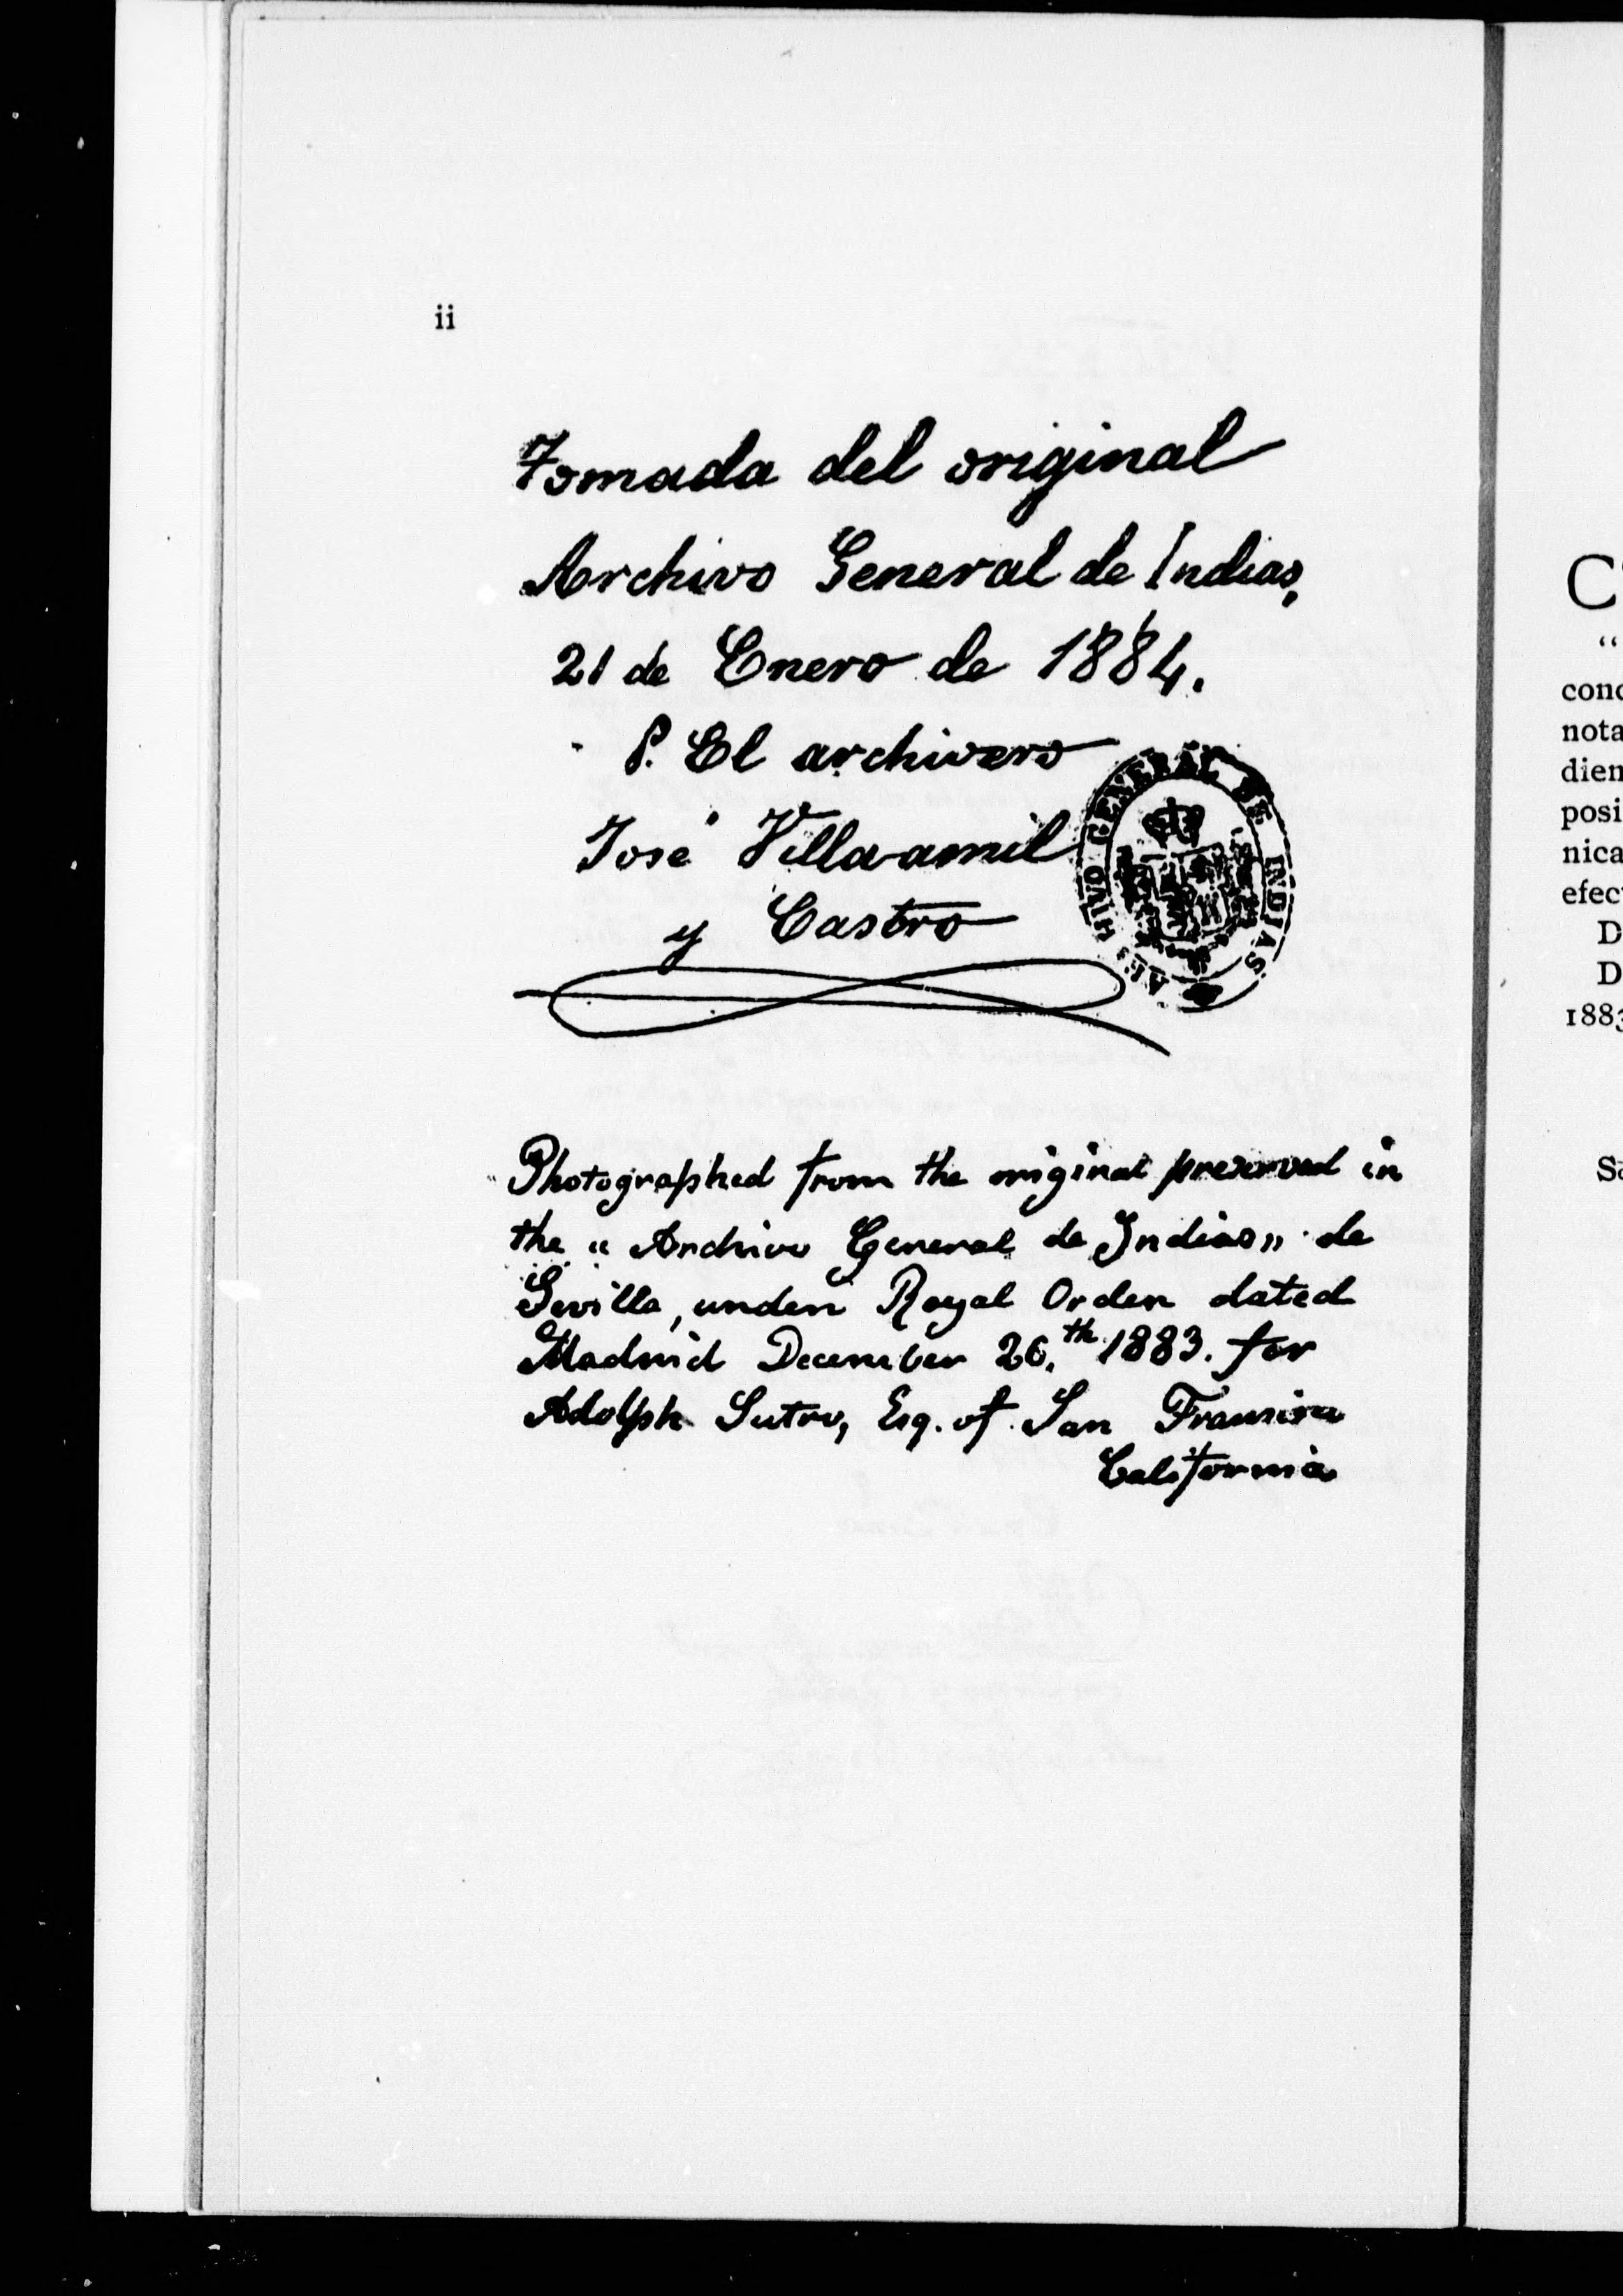 ii
Tomada del original
Archivo General de Indias,
21 de Enero de 1884.
P. El archivero
José Villa-amil
y Castro
ARCHIVO GENERAL DE INDIAS
Photographed from the original preserved in
the "Archivo General de Indias" de
Sevilla, under Royal Order dated
Madrid December 26.th 1883. for
Adolph Sutro, Esq. of San Francisco
California
C
"
conc
nota
dien
posi
nica
efec
D
D
1883
Sa